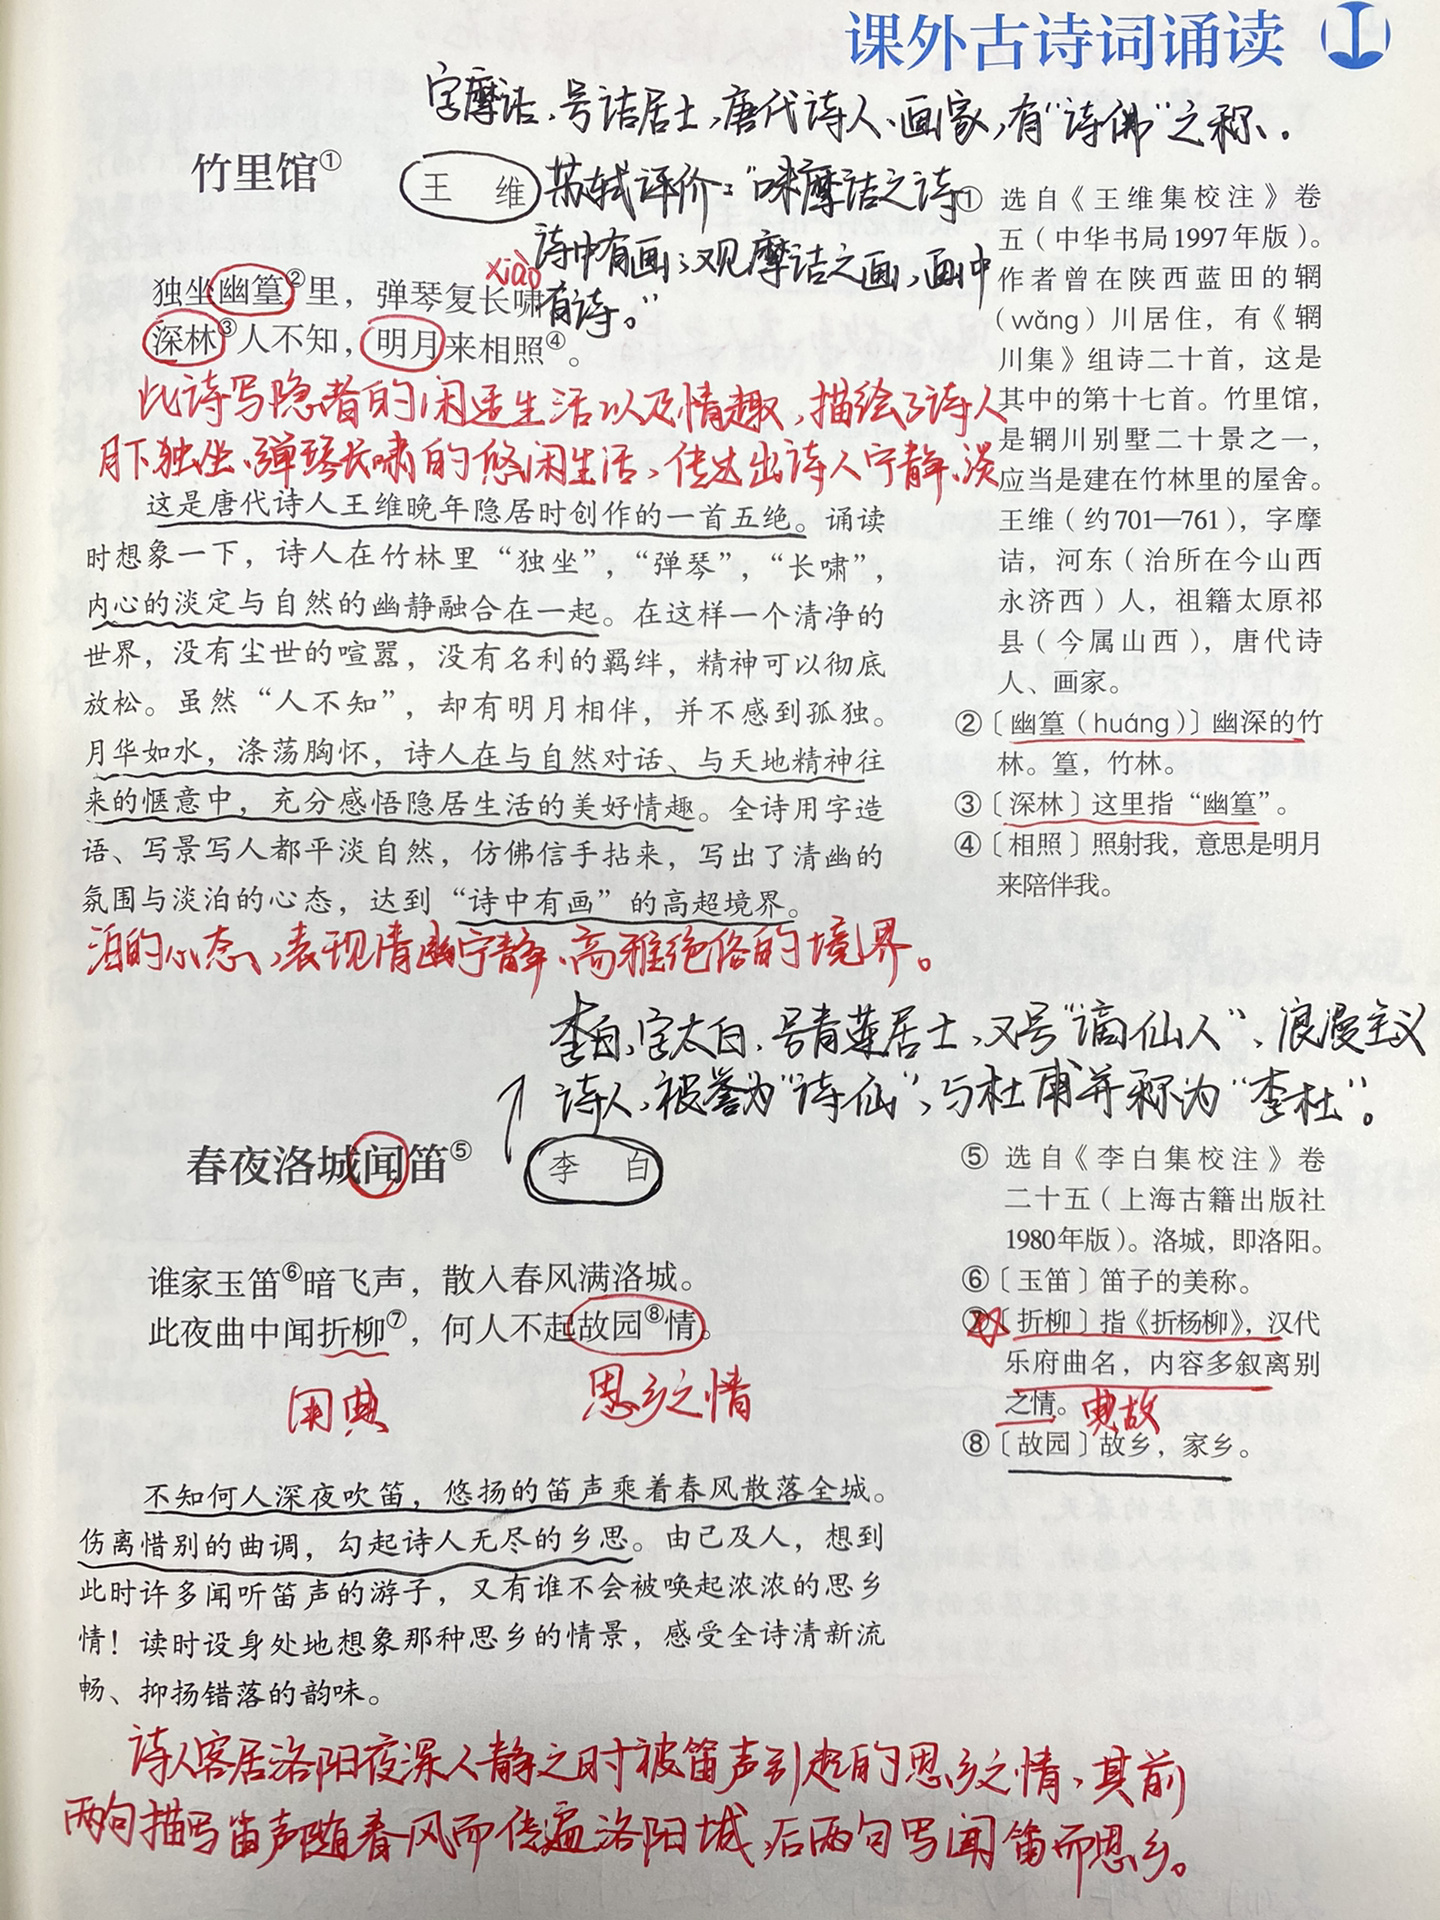 课外古诗词诵读
字摩诘、号诘居士,唐代诗人、画家,有“诗佛”之称、。
竹里馆①
王 维
苏轼评价:“味摩诘之诗
诗中有画;观摩诘之画,画中
有诗。”
xiào
独坐幽篁②里,弹琴复长啸
深林③人不知,明月来相照④。
此诗写隐者的闲适生活以及情趣,描绘了诗人
月下独坐、弹琴长啸的悠闲生活,传达出诗人宁静、淡
这是唐代诗人王维晚年隐居时创作的一首五绝。诵读
时想象一下,诗人在竹林里“独坐”,“弹琴”,“长啸”,
内心的淡定与自然的幽静融合在一起。在这样一个清净的
世界,没有尘世的喧嚣,没有名利的羁绊,精神可以彻底
放松。虽然“人不知”,却有明月相伴,并不感到孤独。
月华如水,涤荡胸怀,诗人在与自然对话、与天地精神往
来的惬意中,充分感悟隐居生活的美好情趣。全诗用字造
语、写景写人都平淡自然,仿佛信手拈来,写出了清幽的
氛围与淡泊的心态,达到“诗中有画”的高超境界。
泊的心态,表现清幽宁静、高雅绝俗的境界。
① 选自《王维集校注》卷
五(中华书局1997年版)。
作者曾在陕西蓝田的辋
(wǎng)川居住,有《辋
川集》组诗二十首,这是
其中的第十七首。竹里馆,
是辋川别墅二十景之一,
应当是建在竹林里的屋舍。
王维(约701—761),字摩
诘,河东(治所在今山西
永济西)人,祖籍太原祁
县(今属山西),唐代诗
人、画家。
②〔幽篁(huáng)〕幽深的竹
林。篁,竹林。
③〔深林〕这里指“幽篁”。
④〔相照〕照射我,意思是明月
来陪伴我。
李白,字太白,号青莲居士,又号“谪仙人”,浪漫主义
诗人,被誉为“诗仙”,与杜甫并称为“李杜”。
春夜洛城闻笛⑤
李 白
谁家玉笛⑥暗飞声,散入春风满洛城。
此夜曲中闻折柳⑦,何人不起故园⑧情。
用典
思乡之情
不知何人深夜吹笛,悠扬的笛声乘着春风散落全城。
伤离惜别的曲调,勾起诗人无尽的乡思。由己及人,想到
此时许多闻听笛声的游子,又有谁不会被唤起浓浓的思乡
情!读时设身处地想象那种思乡的情景,感受全诗清新流
畅、抑扬错落的韵味。
⑤ 选自《李白集校注》卷
二十五(上海古籍出版社
1980年版)。洛城,即洛阳。
⑥〔玉笛〕笛子的美称。
⑦〔折柳〕指《折杨柳》,汉代
乐府曲名,内容多叙离别
之情。典故
⑧〔故园〕故乡,家乡。
诗人客居洛阳夜深人静之时被笛声引起的思乡之情,其前
两句描写笛声随春风而传遍洛阳城,后两句写闻笛而思乡。